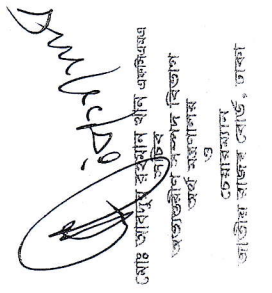 মোঃ আবদুর রহমান খান এফসিএমএ
সচিব
অভ্যন্তরীণ সম্পদ বিভাগ
অর্থ মন্ত্রণালয়
ও
চেয়ারম্যান
জাতীয় রাজস্ব বোর্ড, ঢাকা